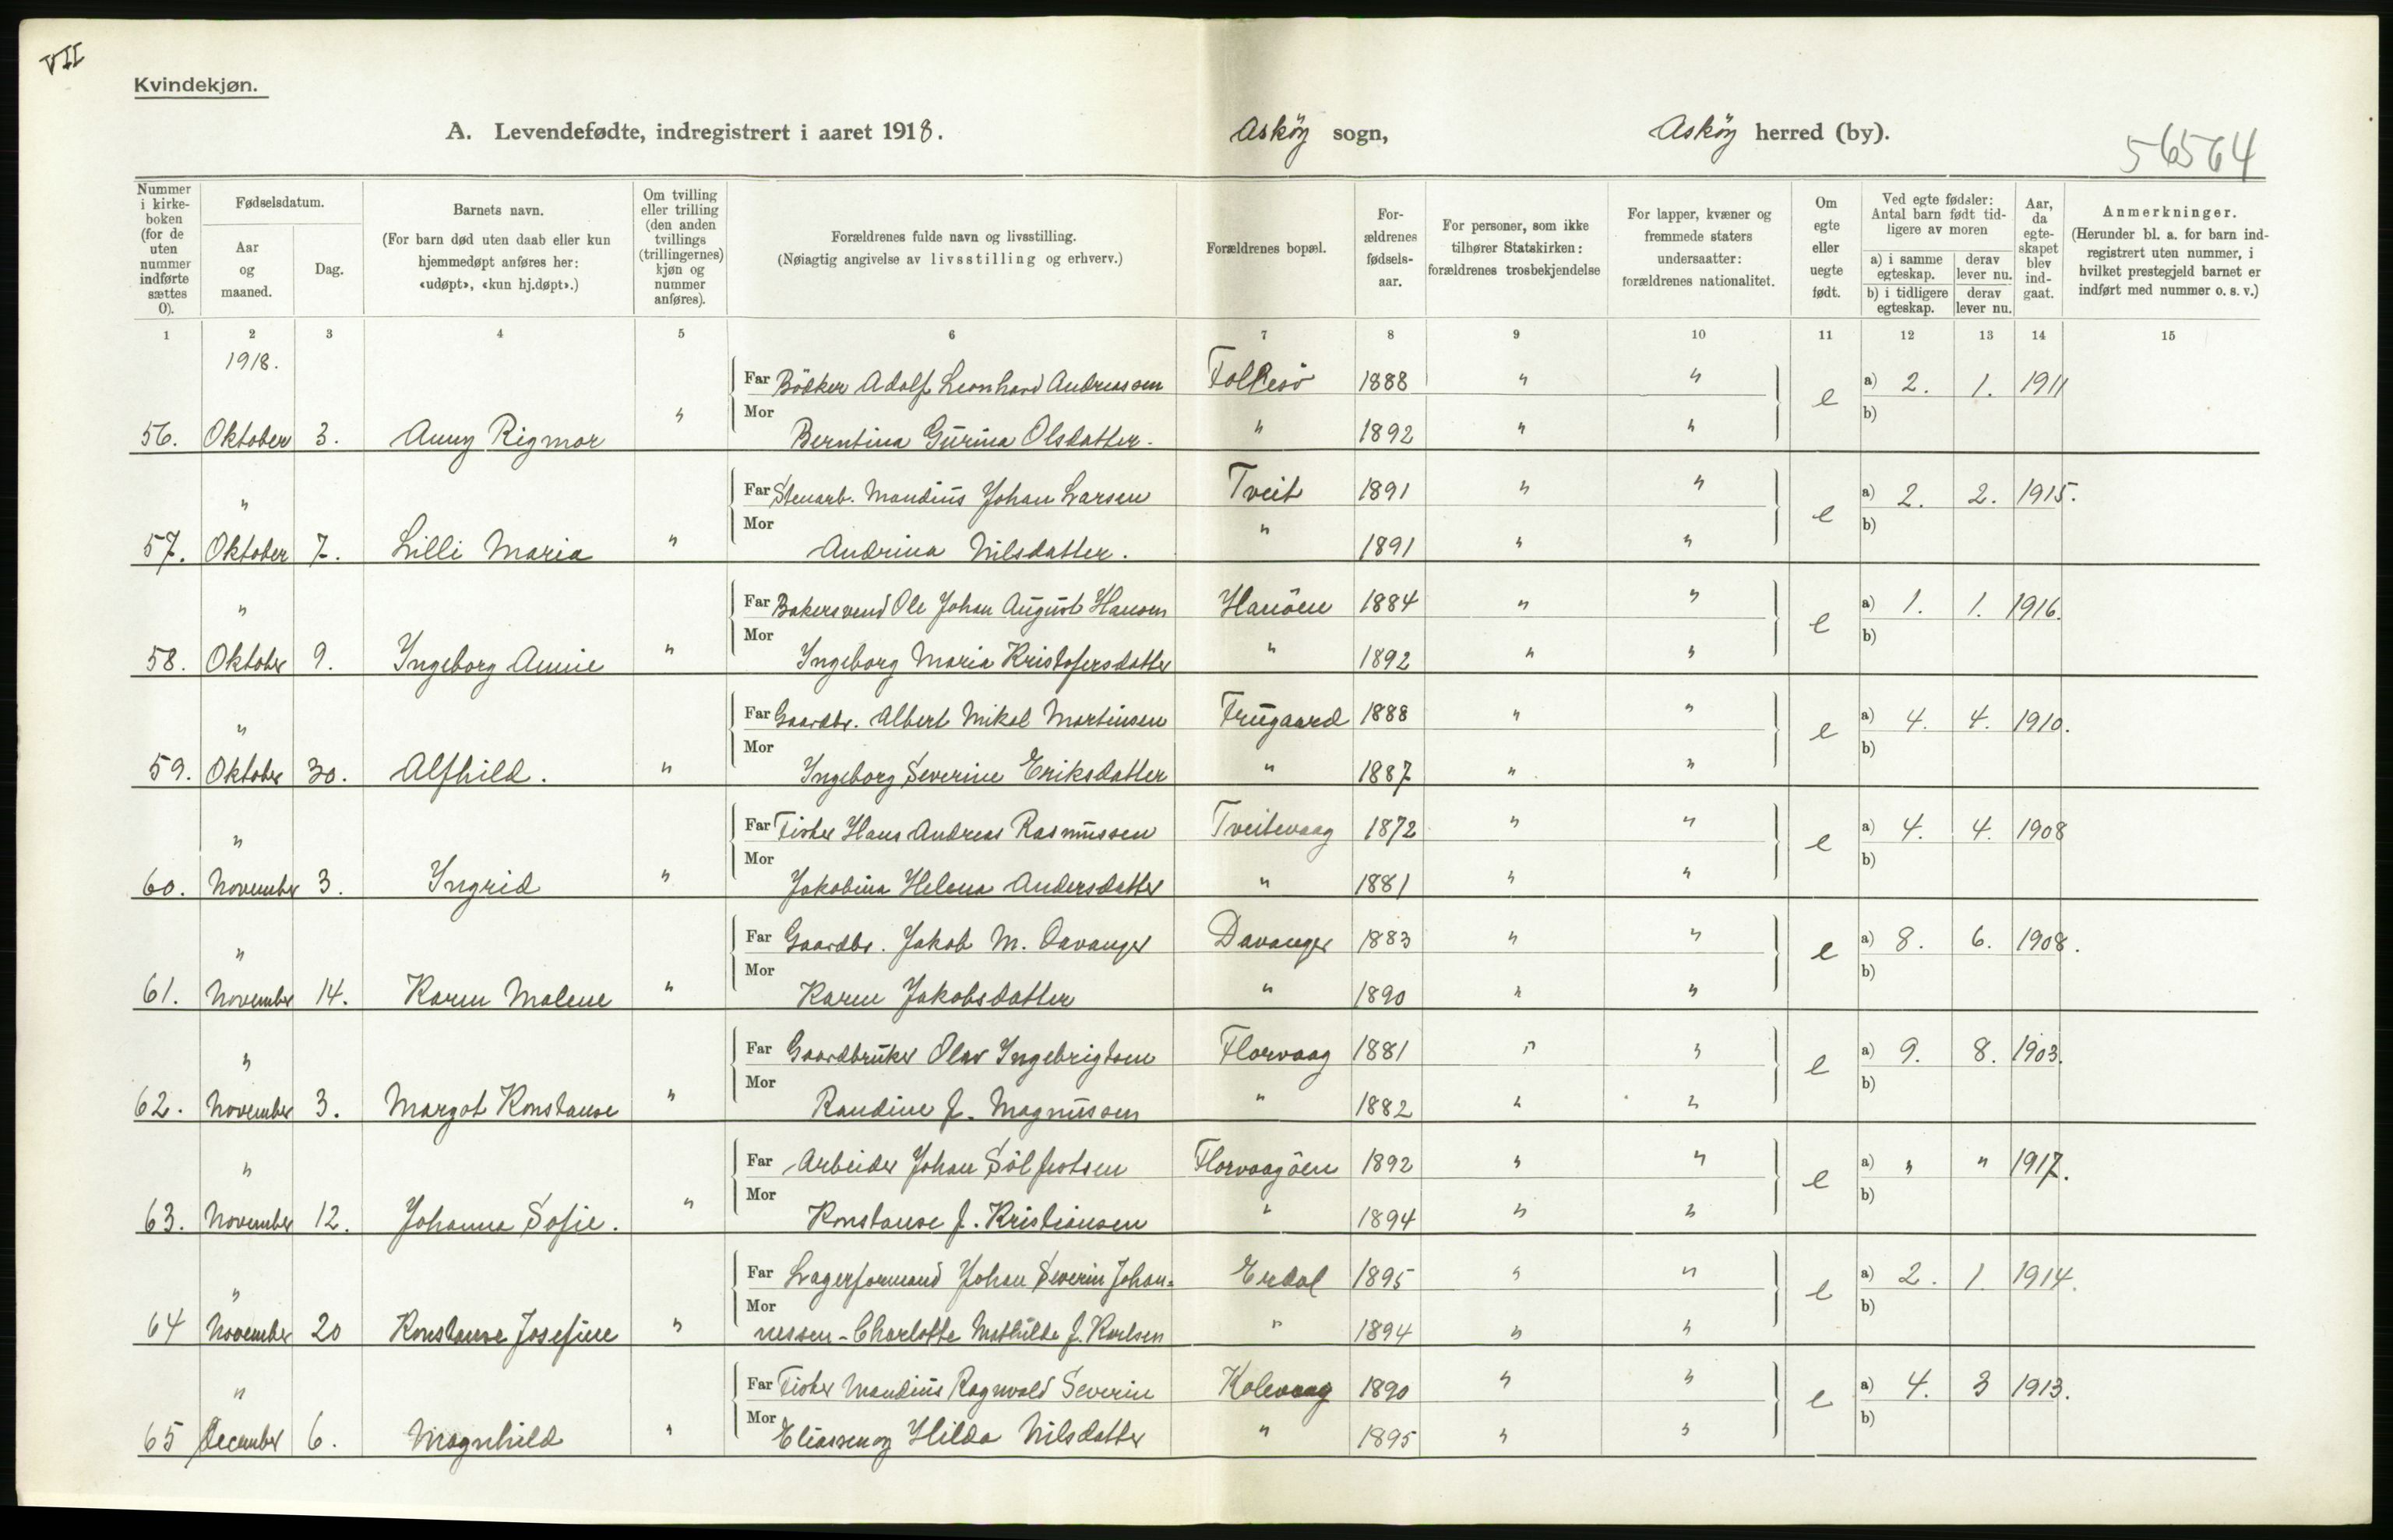 VII
Kvindekjøn.
A. Levendefødte, indregistrert i aaret 1918. Askøy sogn, Askøy herred (by). 56564
Nummer i kirke-boken (for de uten nummer indførte sættes 0).
Fødselsdatum.
Aar og maaned.
Dag.
Barnets navn.
(For barn død uten daab eller kun hjemmedøpt anføres her: «udøpt», «kun hj.døpt».)
Om tvilling eller trilling (den anden tvillings (trillingernes) kjøn og nummer anføres).
Forældrenes fulde navn og livsstilling.
(Nøiagtig angivelse av livsstilling og erhverv.)
Forældrenes bopæl.
For-ældrenes fødsels-aar.
For personer, som ikke tilhører Statskirken: forældrenes trosbekjendelse
For lapper, kvæner og fremmede staters undersaatter: forældrenes nationalitet.
Om egte eller uegte født.
Ved egte fødsler: Antal barn født tid-ligere av moren
a) i samme egteskap. derav lever nu.
b) i tidligere egteskap. derav lever nu.
Aar, da egte-skapet blev ind-gaat.
Anmerkninger.
(Herunder bl. a. for barn ind-registrert uten nummer, i hvilket prestegjeld barnet er indført med nummer o. s. v.)
1 2 3 4 5 6 7 8 9 10 11 12 13 14 15
1918.
Far Bökker Adolf Leonhard Andreassen Follesö 1888 " " e a) 2. 1. 1911
56. Oktober 3. Anny Rigmor " Mor Berntina Gurina Olsdatter. " 1892 " " b)
" Far Stenarb. Mandius Johan Larsen Tveit 1891 " " e a) 2. 2. 1915.
57. Oktober 7. Lilli Maria " Mor Andrina Nilsdatter. " 1891 " " b)
" Far Bakersvend Ole Johan August Hansen Hanöen 1884 " " e a) 1. 1. 1916.
58. Oktober 9. Ingeborg Annie " Mor Ingeborg Maria Kristofersdatter " 1892 " " b)
" Far Gaardbr. Albert Mikal Martinsen Frugaard 1888 " " e a) 4. 4. 1910.
59. Oktober 30. Alfhild. " Mor Ingeborg Severine Eriksdatter " 1887 " " b)
" Far Fisker Hans Andreas Rasmussen Tveitevaag 1872 " " e a) 4. 4. 1908
60. November 3. Ingrid " Mor Jakobina Helena Andersdatter " 1881 " " b)
" Far Gaardbr. Jakob M. Davanger Davanger 1883 " " e a) 8. 6. 1908.
61. November 14. Karen Malene " Mor Karen Jakobsdatter " 1890 " " b)
" Far Gaardbruker Olav Ingebrigtsen Florvaag 1881 " " e a) 9. 8. 1903.
62. November 3. Margot Konstanse " Mor Randine J. Magnussen " 1882 " " b)
" Far Arbeider Johan Sölfestsen Florvaagöen 1892 " " e a) " " 1917.
63. November 12. Johanna Sofie. " Mor Konstanse J. Kristiansen " 1894 " " b)
" Far Lagerformand Johan Severin Johan= Erdal 1895 " " e a) 2. 1. 1914.
64 November 20 Konstanse Josefine " Mor nessen - Charlotte Mathilde J. Karlsen " 1894 " " b)
" Far Fisker Mandius Ragnvald Severin Kolevaag 1890 " " e a) 4. 3 1913.
65 December 6. Magnhild " Mor Eliassen og Hilda Nilsdatter " 1895 " " b)